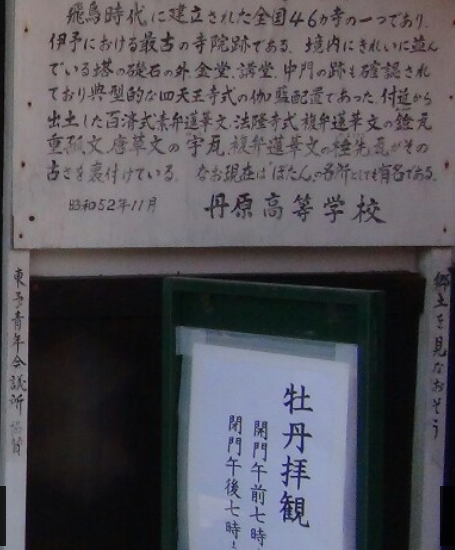 飛鳥時代に建立された全国46カ寺の一つであり、
伊予における最古の寺院跡である。境内にきれいに並ん
でいる塔の礎石の外、金堂、講堂、中門の跡も確認され
ており典型的な四天王寺式の伽藍配置であった。付近から
出土した百済式素弁蓮華文、法隆寺式複弁蓮華文の鐙瓦
重弧文、唐草文の宇瓦、複弁蓮華文の棰先瓦がその
古さを裏付けている。なお現在は"ぼたん"の名所としても有名である。
昭和52年11月 丹原高等学校
郷土を見なおそう
東予青年会議所 協賛
牡丹拝観
開門午前七時
閉門午後七時